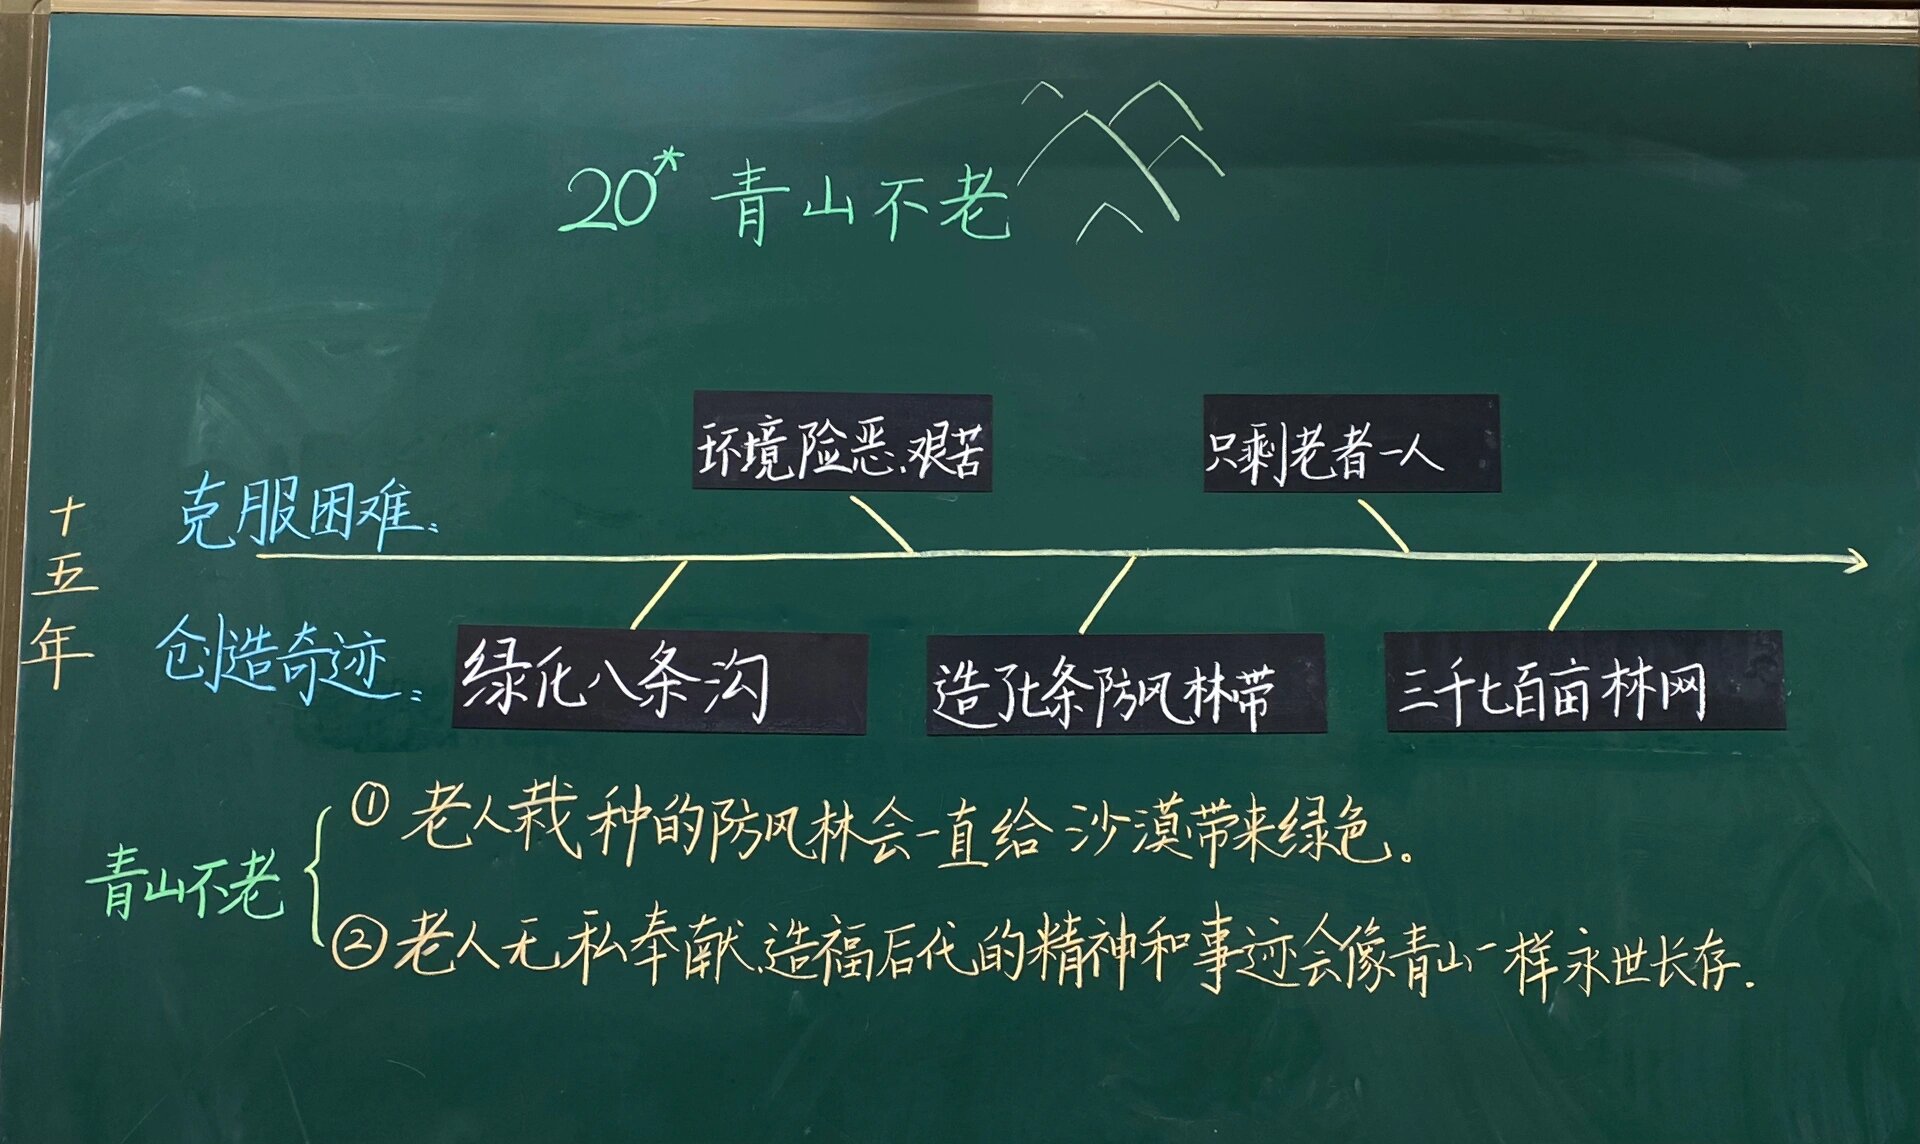 20* 青山不老
环境险恶、艰苦
只剩老者一人
十五年
克服困难：
创造奇迹：
绿化八条沟
造了七条防风林带
三千七百亩林网
青山不老
①老人栽种的防风林会一直给沙漠带来绿色。
②老人无私奉献、造福后代的精神和事迹会像青山一样永世长存.